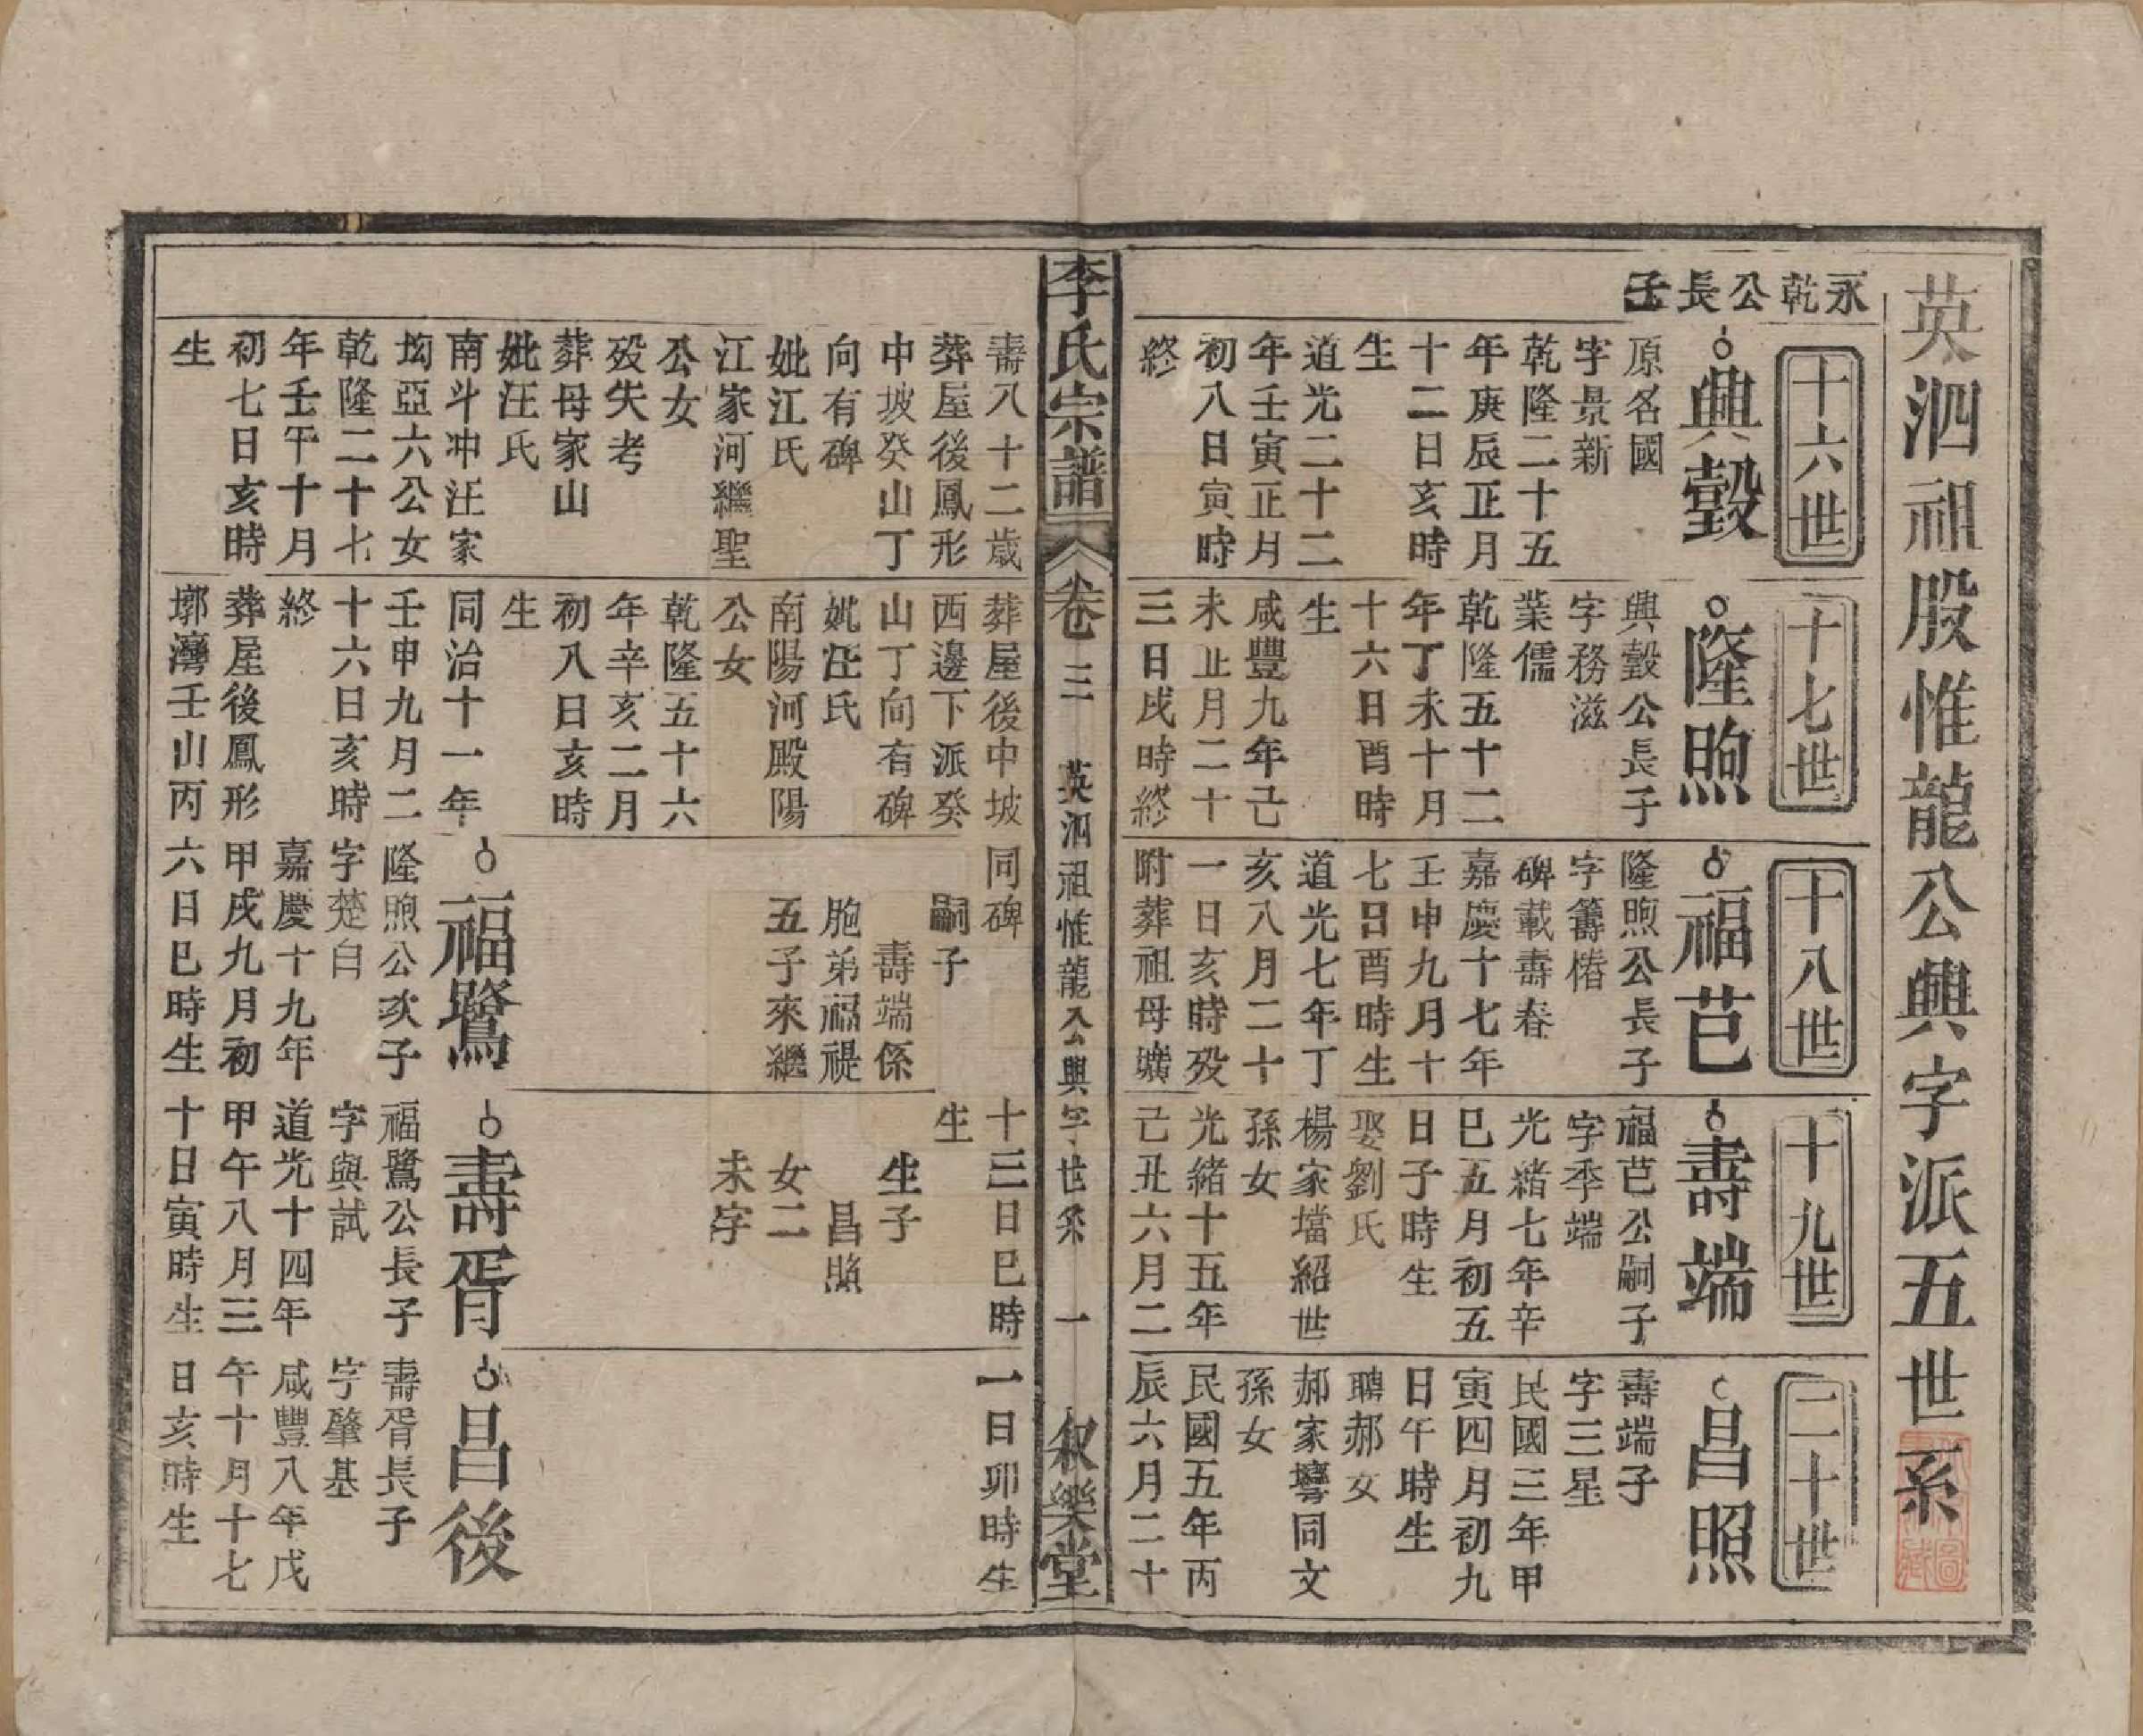 英泗祖股惟龍公興字派五世系
永乾公長子
十六世
興瑴
原名國
字景新
乾隆二十五
年庚辰正月
十二日亥時
生
道光二十二
年壬寅正月
初八日寅時
終
十七世
隆煦
興瑴公長子
字務滋
業儒
乾隆五十二
年丁未十月
十六日酉時
生
咸豐九年己
未正月二十
三日戌時終
十八世
福芑
隆煦公長子
字籌椿
碑載壽春
嘉慶十七年
壬申九月十
七日酉時生
道光七年丁
亥八月二十
一日亥時歿
附葬祖母壙
十九世
壽端
福芑公嗣子
字季端
光緒七年辛
巳五月初五
日子時生
娶劉氏
楊家壋紹世
孫女
光緒十五年
己丑六月二
二十世
昌照
壽端子
字三星
民國三年甲
寅四月初九
日午時生
聘郝女
郝家塆同文
孫女
民國五年丙
辰六月二十
李氏宗譜
卷三
英泗祖惟龍公興字世系
一
叙樂堂
壽八十二歲
葬屋後鳳形
中坡癸山丁
向有碑
妣江氏
江家河繼聖
公女
歿失考
葬母家山
妣汪氏
南斗冲汪家
坳亞六公女
乾隆二十七
年壬午十月
初七日亥時
生
葬屋後中坡
西邊下派癸
山丁向有碑
妣汪氏
南陽河殿陽
公女
乾隆五十六
年辛亥二月
初八日亥時
生
同治十一年
壬申九月二
十六日亥時
終
葬屋後鳳形
墎灣壬山丙
同碑
嗣子
壽端係
胞弟福禔
五子來繼
福鷺
隆煦公次子
字楚白
嘉慶十九年
甲戌九月初
六日巳時生
十三日巳時
生
生子
昌照
女二
未字
壽胥
福鷺公長子
字與試
道光十四年
甲午八月三
十日寅時生
一日卯時生
昌後
壽胥長子
字肇基
咸豐八年戊
午十月十七
日亥時生